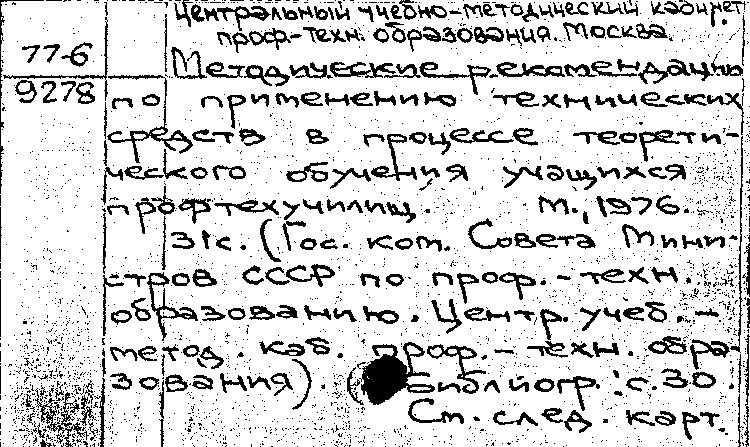 Центральный учебно-методический кабинет
проф.-техн. образования. Москва.
77-6
Методические рекомендации
9278
по применению технических
средств в процессе теорети-
ческого обучения учащихся
профтехучилищ. М., 1976.
31с. (Гос. ком. Совета Мини-
стров СССР по проф.-техн.
образованию. Центр. учеб.-
метод. каб. проф.-техн. обра-
зования). Библиогр.: с.30.
См. след. карт.